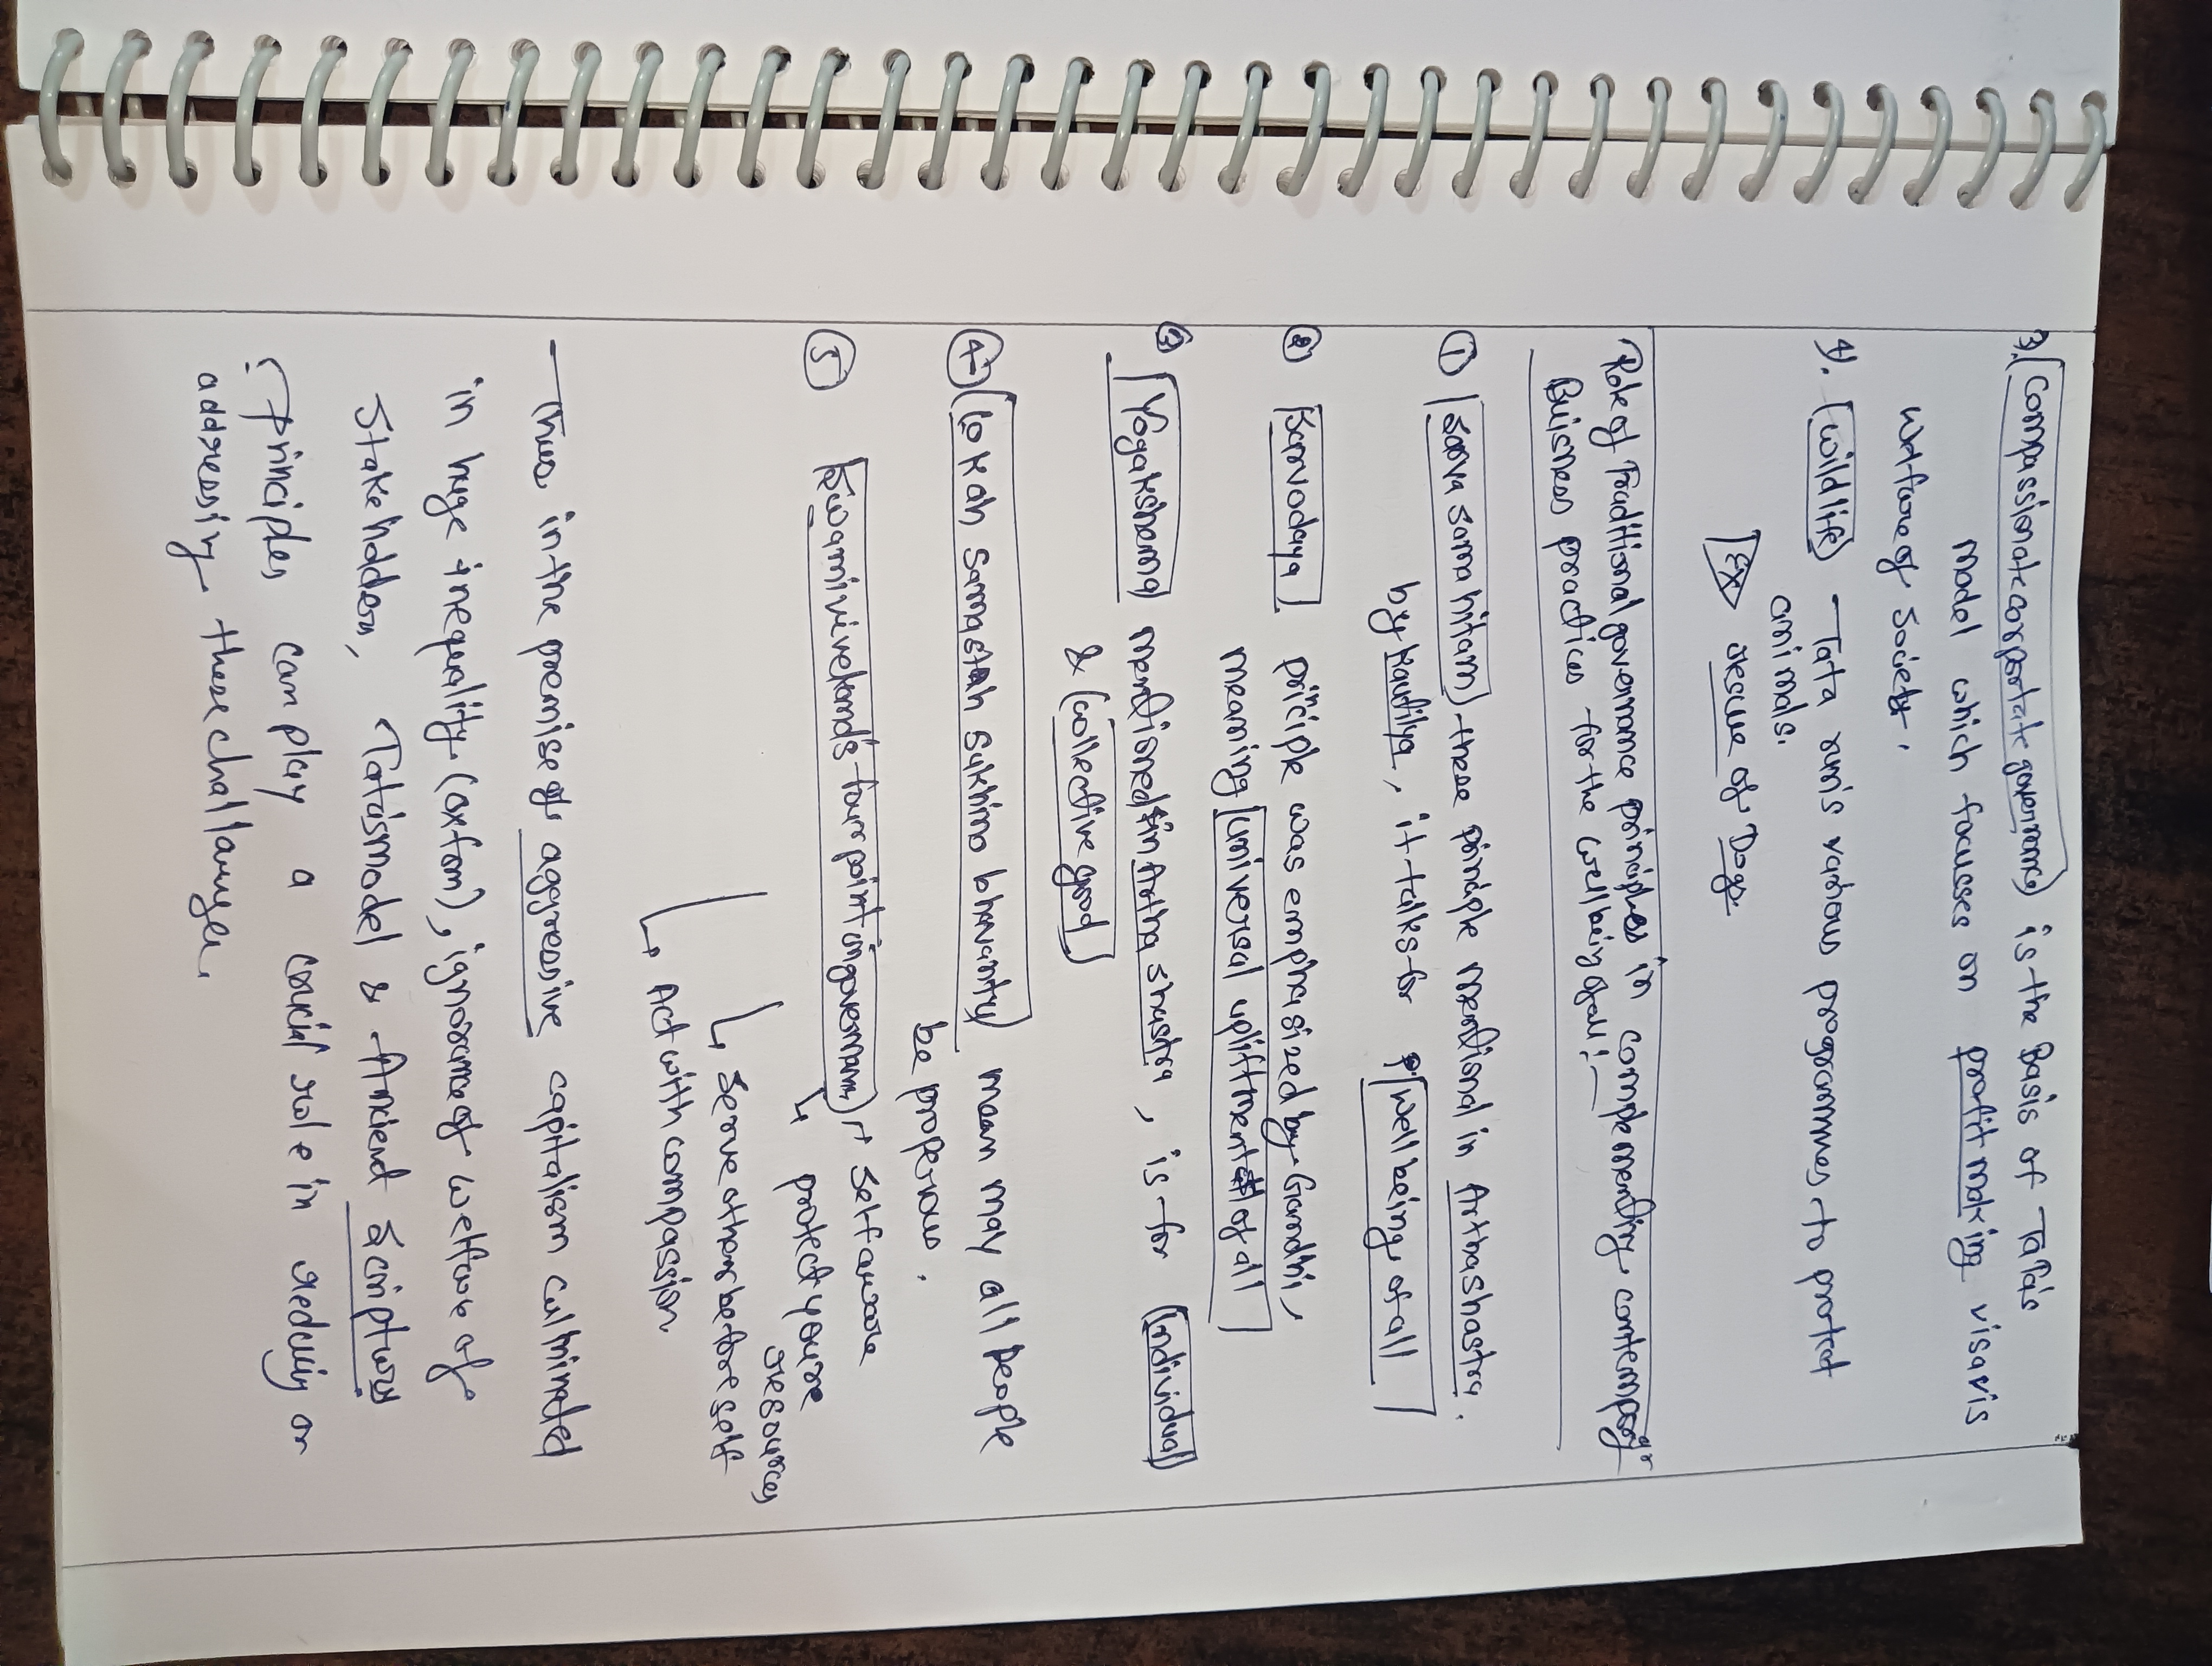 3). Compassionate corportate governance is the Basis of TaTa's
model which focusses on profit making visavis
welfare of Society.
4). wildlife - Tata runs various programmes to protect
animals.
Ex rescue of Dogs.
Role of Traditional governance principles in complementing contempory
Buisness practices for the wellbeing of all:-
① Sarva sama hitam - these principle mentiond in Arthashastra.
by kautilya, it talks for wellbeing of all
② Sarvodaya priciple was emphasized by Gandhi,
meaning universal upliftment of all
③ Yogakshema mentioned in Artha shastra, is for Individual
& collective good
④ Lokah samastah sukhino bhavantu mean may all people
be properous.
⑤ Swamivivekands four point in governam Self aware
protect youre resources
Serve others before self
Act with compassion
Thus in the premise of aggressive capitalism culminated
in huge inequality (oxfam), ignorance of welfare of
Stakeholders, Tatasmodel & Ancient Scriptures
principles can play a crucial role in reducing or
addressing these challanges.